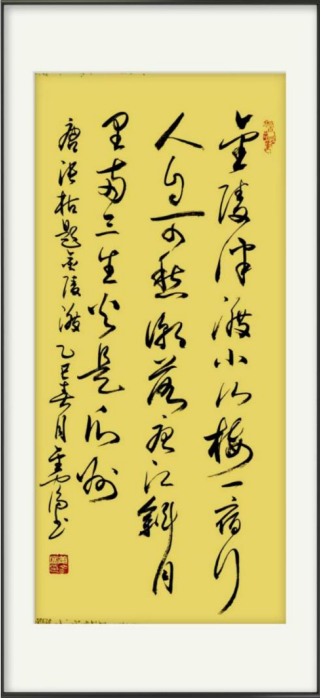 金陵津渡小山楼一宿行
人自可愁潮落夜江斜月
里两三星火是瓜洲
唐张祜题金陵渡 乙巳春月